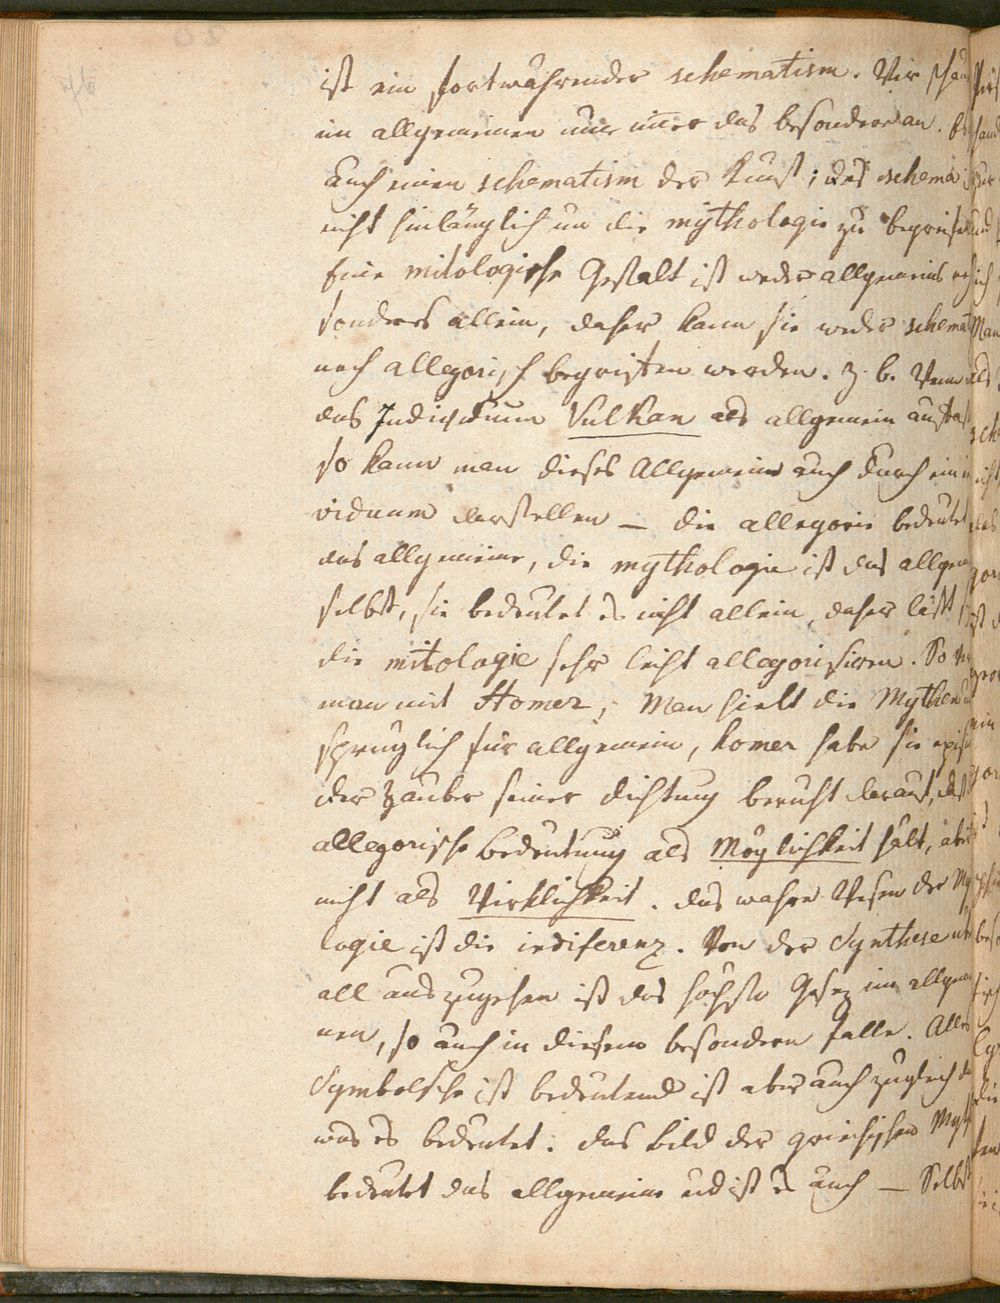 ist ein fortwährender schematism. Wir schau
im allgemeinen nur im̅er das besondere an. Es
auch einen schematism der Kunst; das schema
nicht hinlänglich um die mÿthologie zu begreifen
Eine mitologische Gestalt ist weder allgemeins
sonders allein, daher kann sie weder schemat
noch allegorisch begriffen werden. Z. b. Wenn
das Individuum Vulkan als allgemein auffaßt
so kann man dieses Allgemeine auch durch ein in
viduum darstellen – die allegorie bedeutet
das allgemeine, die mythologie ist das allgem
selbst, sie bedeutet es nicht allein, daher läßt
die mitologie sehr leicht allegorisiren. So
man mit Homer; Man hielt die Mythen u
sprünglich für allgemein, homer habe sie
der Zauber seiner dichtung beruht darauf, daß
allegorische bedeutung als Möglichkeit hält, aber
nicht als Wirklichkeit. das wahre Wesen der My
logie ist die indiferenz. Von der Synthese
all auszugehen ist das höchste Gesez im allgemei
nen, so auch in diesem besondern Falle. Alles
Symbolsche ist bedeutend ist aber auch zugleich d
was es bedeutet. das bild der griechischen Myth
bedeutet das allgemeine ud ist es auch – Selbst